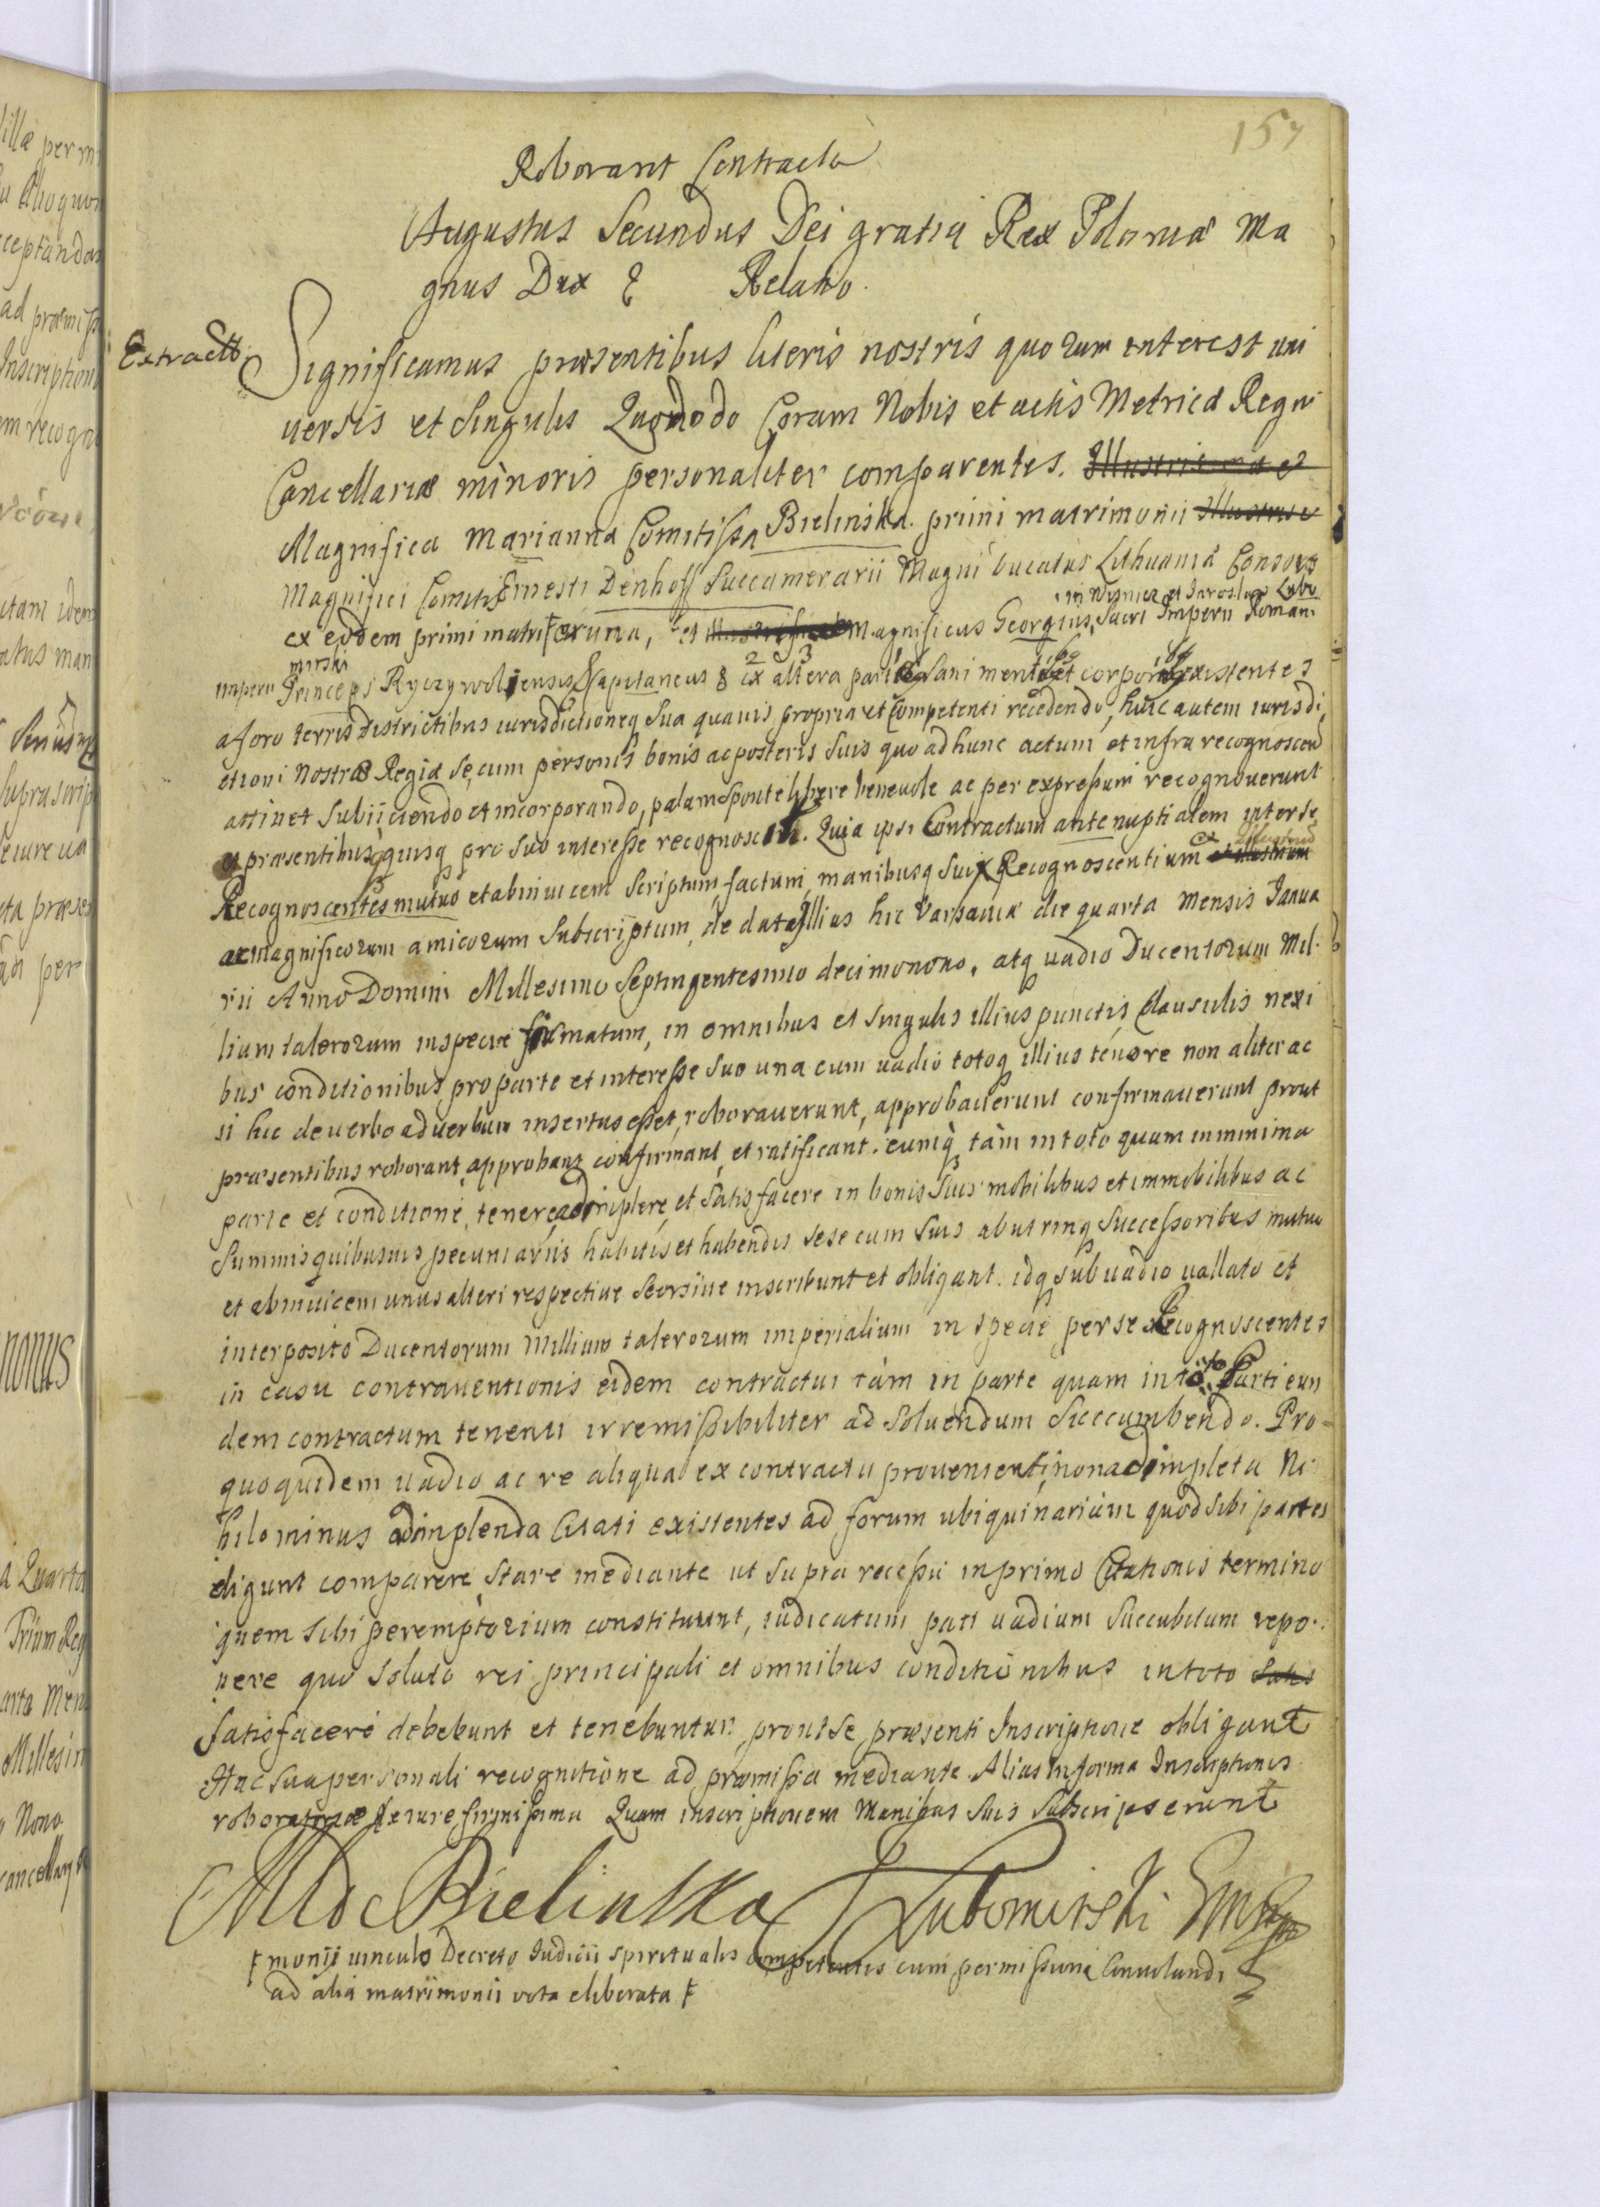 157
Roborant Contractu
Augustus Secundus Dei gratia Rex Poloniæ Ma
gnus Dux & Relatio
Extractt
Significamus præsentibus literis nostris quorum interest uni
versis et singulis Quomodo Coram Nobis et actis Metricæ Regni
Cancellariæ minoris personaliter comparentes. Illustrissima et
Magnifica Marianna Comitissa Bielinska primi matrimonii Illustris
Magnifici Comitis Ernesti Denhoff Succamerarii Magni Ducatus Lithuaniæ Consors
in Wisnicz et Jaroslaw Lubo
ex eodem primi matri ꝉ una, et Magnificus Georgius, Sacri Imperii Romani
mirski
Imperii Princeps Ryczywoliensis Capitaneus & ex altera parte Sani mentibus et corporibus existentes
a foro terris districtibus iurisdictioneq sua quavis propria et Competenti recedendo, huic autem iurisdi
ctioni Nostræ Regiæ se, cum personis bonis ac posteris suis quo ad hunc actum et infra recognoscen
attinet subiiciendo et incorporando, palam sponte libere benevole ac per expressum recognoverunt
et præsentibus quisq pro suo interesse recognoscunt. Quia ipsi Contractum antenuptialem inter se
Recognoscentes mutuo et ab invicem scriptum, factum, manibusq suis Recognoscentium et Illustrium
ac Magnificorum amicorum subscriptum, de data illius hic Varsaviæ die quarta mensis Janua
rii Anno Domini Millesimo Septingentesimo decimonono, atq vadio Ducentorum Mil
lium talerorum in specie firmatum, in omnibus et singulis illius punctis Clausulis nexi
bus conditionibus, pro parte et interesse suo una cum vadio totoq illius tenore non aliter ac
si hic de verbo ad verbum insertus esset, roboraverunt, approbaverunt confirmaverunt prout
præsentibus roborant, approbant confirmant, et ratificant. eumq tàm in toto quam in minima
parte et conditione, tenere adimplere, et satisfacere in bonis suis mobilibus et immobilibus ac
summis quibusvis pecuniariis habitis et habendis sese cum suis ab utrinq successoribus mutuo
et ab invicem unus alteri respective seorsive inscribunt et obligant. idq sub vadio vallato et
interposito Ducentorum Millium talerorum imperialium in specie per se Recognoscentes
in casu contraventionis eidem contractui tàm in parte quam in toto Parti eun
dem contractum tenenti irremissibiliter ad solvendum succumbendo. Pro
quo quidem vadio ac re aliqua ex contractu provenienti, non adimpleta Ni
hilominus adimplenda Citati existentes ad forum ubiquinarium quod sibi partes
eligunt comparere stare mediante ut supra recessu in primo Citationis termino
quem sibi peremptorium constituunt, iudicatum pati vadium succubitum repo
nere quo soluto rei principali et omnibus conditionibus in toto satis
satisfacere debebunt et tenebuntur, prout se præsenti Inscriptione obligant
Hac sua personali recognitione ad præmissa mediante. Alias in forma Inscriptionis
roboratoriæ de iure firmissima Quam inscriptionem Manibus Suis Subscripserunt
M de Bielinska
J Lubomirski
ꝉ monii vinculo Decreto Iudicii spiritualis competentis cum permissione Convolandi
ad alia matrimonii vota eliberata ꝉ